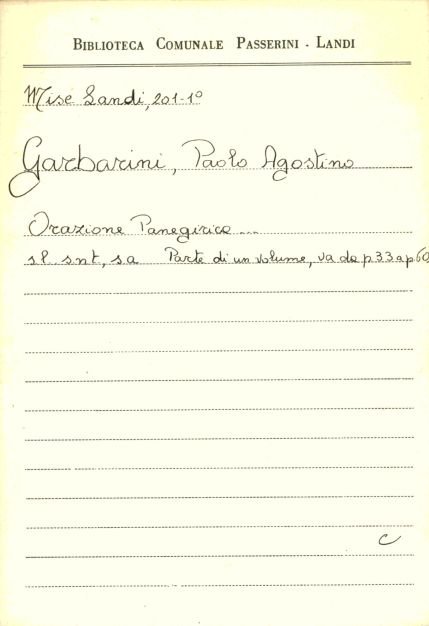 BIBLIOTECA COMUNALE PASSERINI - LANDI
Misc Landi, 201-1º
Garbarini, Paolo Agostino
Orazione Panegirica ...
sl. snt, sa Parte di un volume, va da p 33 a p 60
C